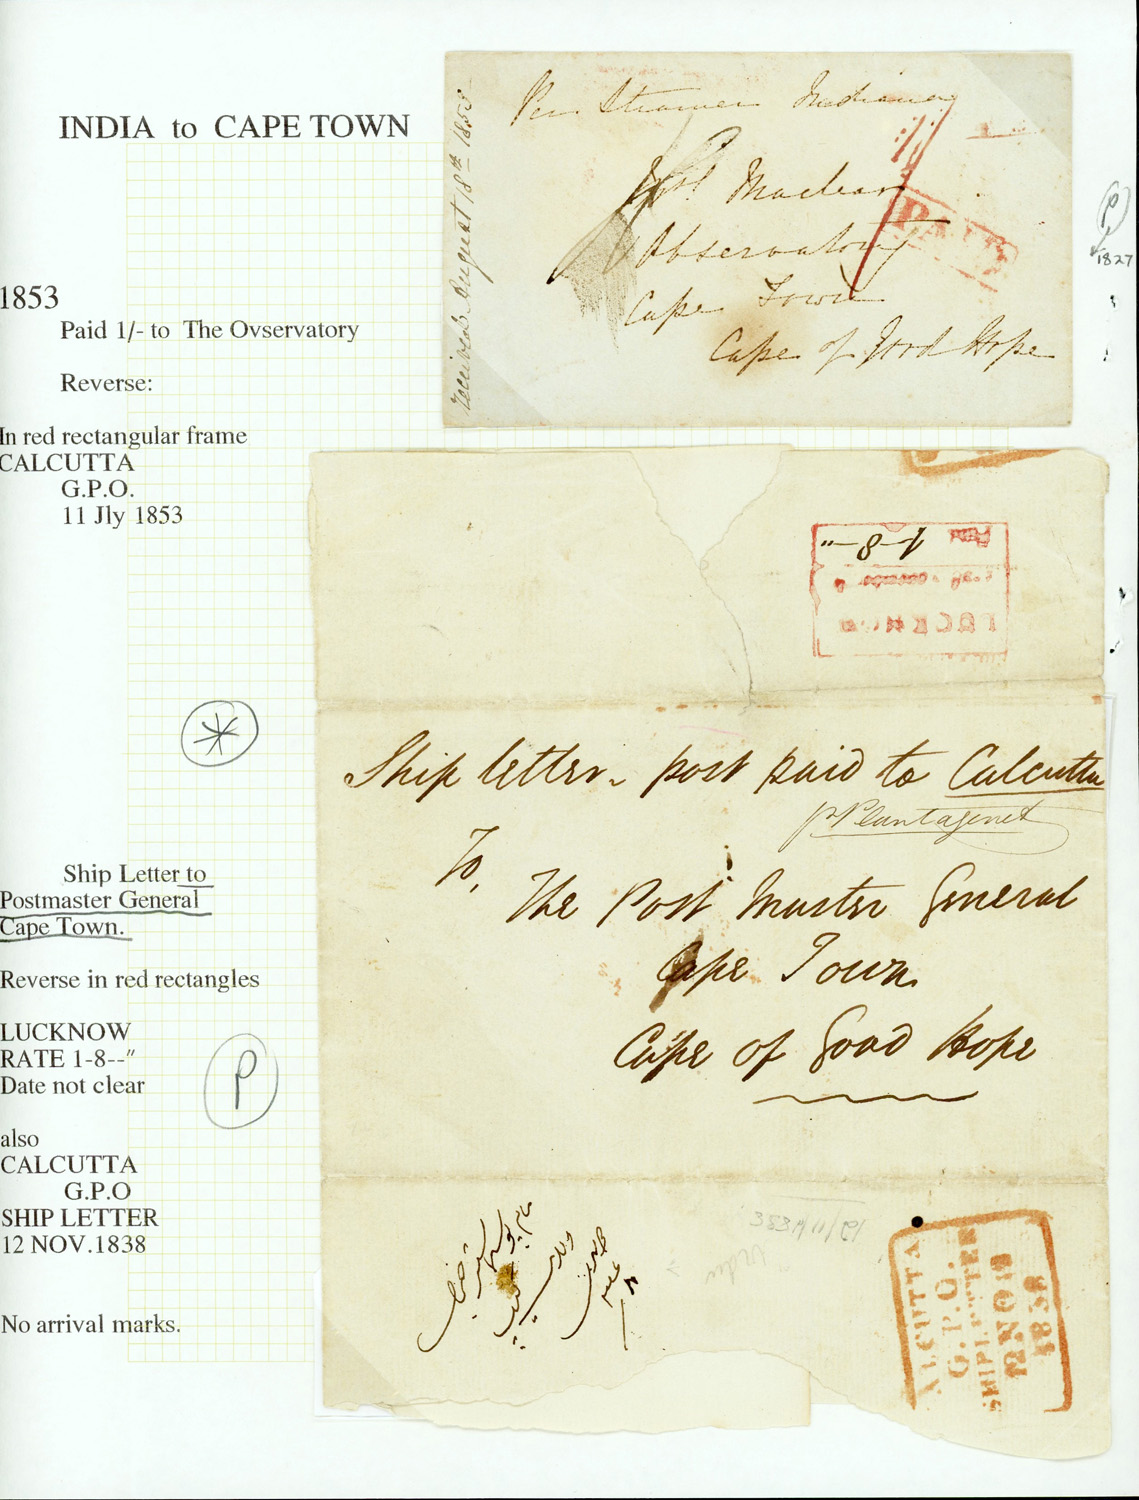 INDIA to CAPE TOWN
1853
Paid 1/- to The Ovservatory
Reverse:
In red rectangular frame
CALCUTTA
G.P.O.
11 Jly 1853
Per Steamer Indiana
Maclear
Observatory
Cape Town
Cape of Good Hope
Received August 18th 1853
PAID
P
1827
1-8-"
LUCKNOW
Ship letter. post paid to Calcutta
pr Plantagenet
To,
The Post Master General
Cape Town
Cape of Good Hope
Ship Letter to
Postmaster General
Cape Town.
Reverse in red rectangles
LUCKNOW
RATE 1-8--"
Date not clear
P
also
CALCUTTA
G.P.O
SHIP LETTER
12 NOV.1838
No arrival marks.
CALCUTTA
G.P.O.
SHIP LETTER
12 NOV
1838